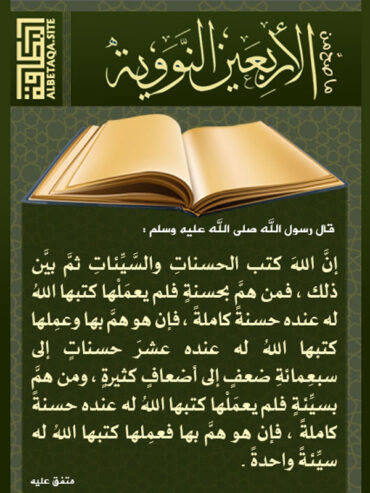 ما صح من
الأربعين النَّوَوِية
البطاقة
ALBETAQA.SITE
قال رسول اللَّه صلى اللَّه عليه وسلم :
إنَّ اللهَ كتب الحسناتِ والسَّيِّئاتِ ثمَّ بيَّن
ذلك ، فمن همَّ بحسنةٍ فلم يعمَلْها كتبها اللهُ
له عنده حسنةً كاملةً ، فإن هو همَّ بها وعمِلها
كتبها اللهُ له عنده عشرَ حسناتٍ إلى
سبعِمائةِ ضعفٍ إلى أضعافٍ كثيرةٍ ، ومن همَّ
بسيِّئةٍ فلم يعمَلْها كتبها اللهُ له عنده حسنةً
كاملةً ، فإن هو همَّ بها فعمِلها كتبها اللهُ له
سيِّئةً واحدةً .
متفق عليه